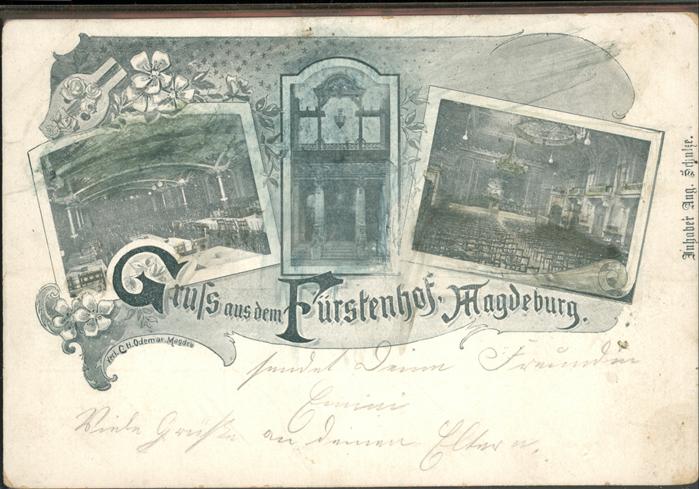 Gruss aus dem Fürstenhof, Magdeburg.
Inhaber Aug. Schulze.
C. H. Odemar, Magdeb
sendet Deine Freundin
Emmi
Viele Grüße an deinen Eltern.